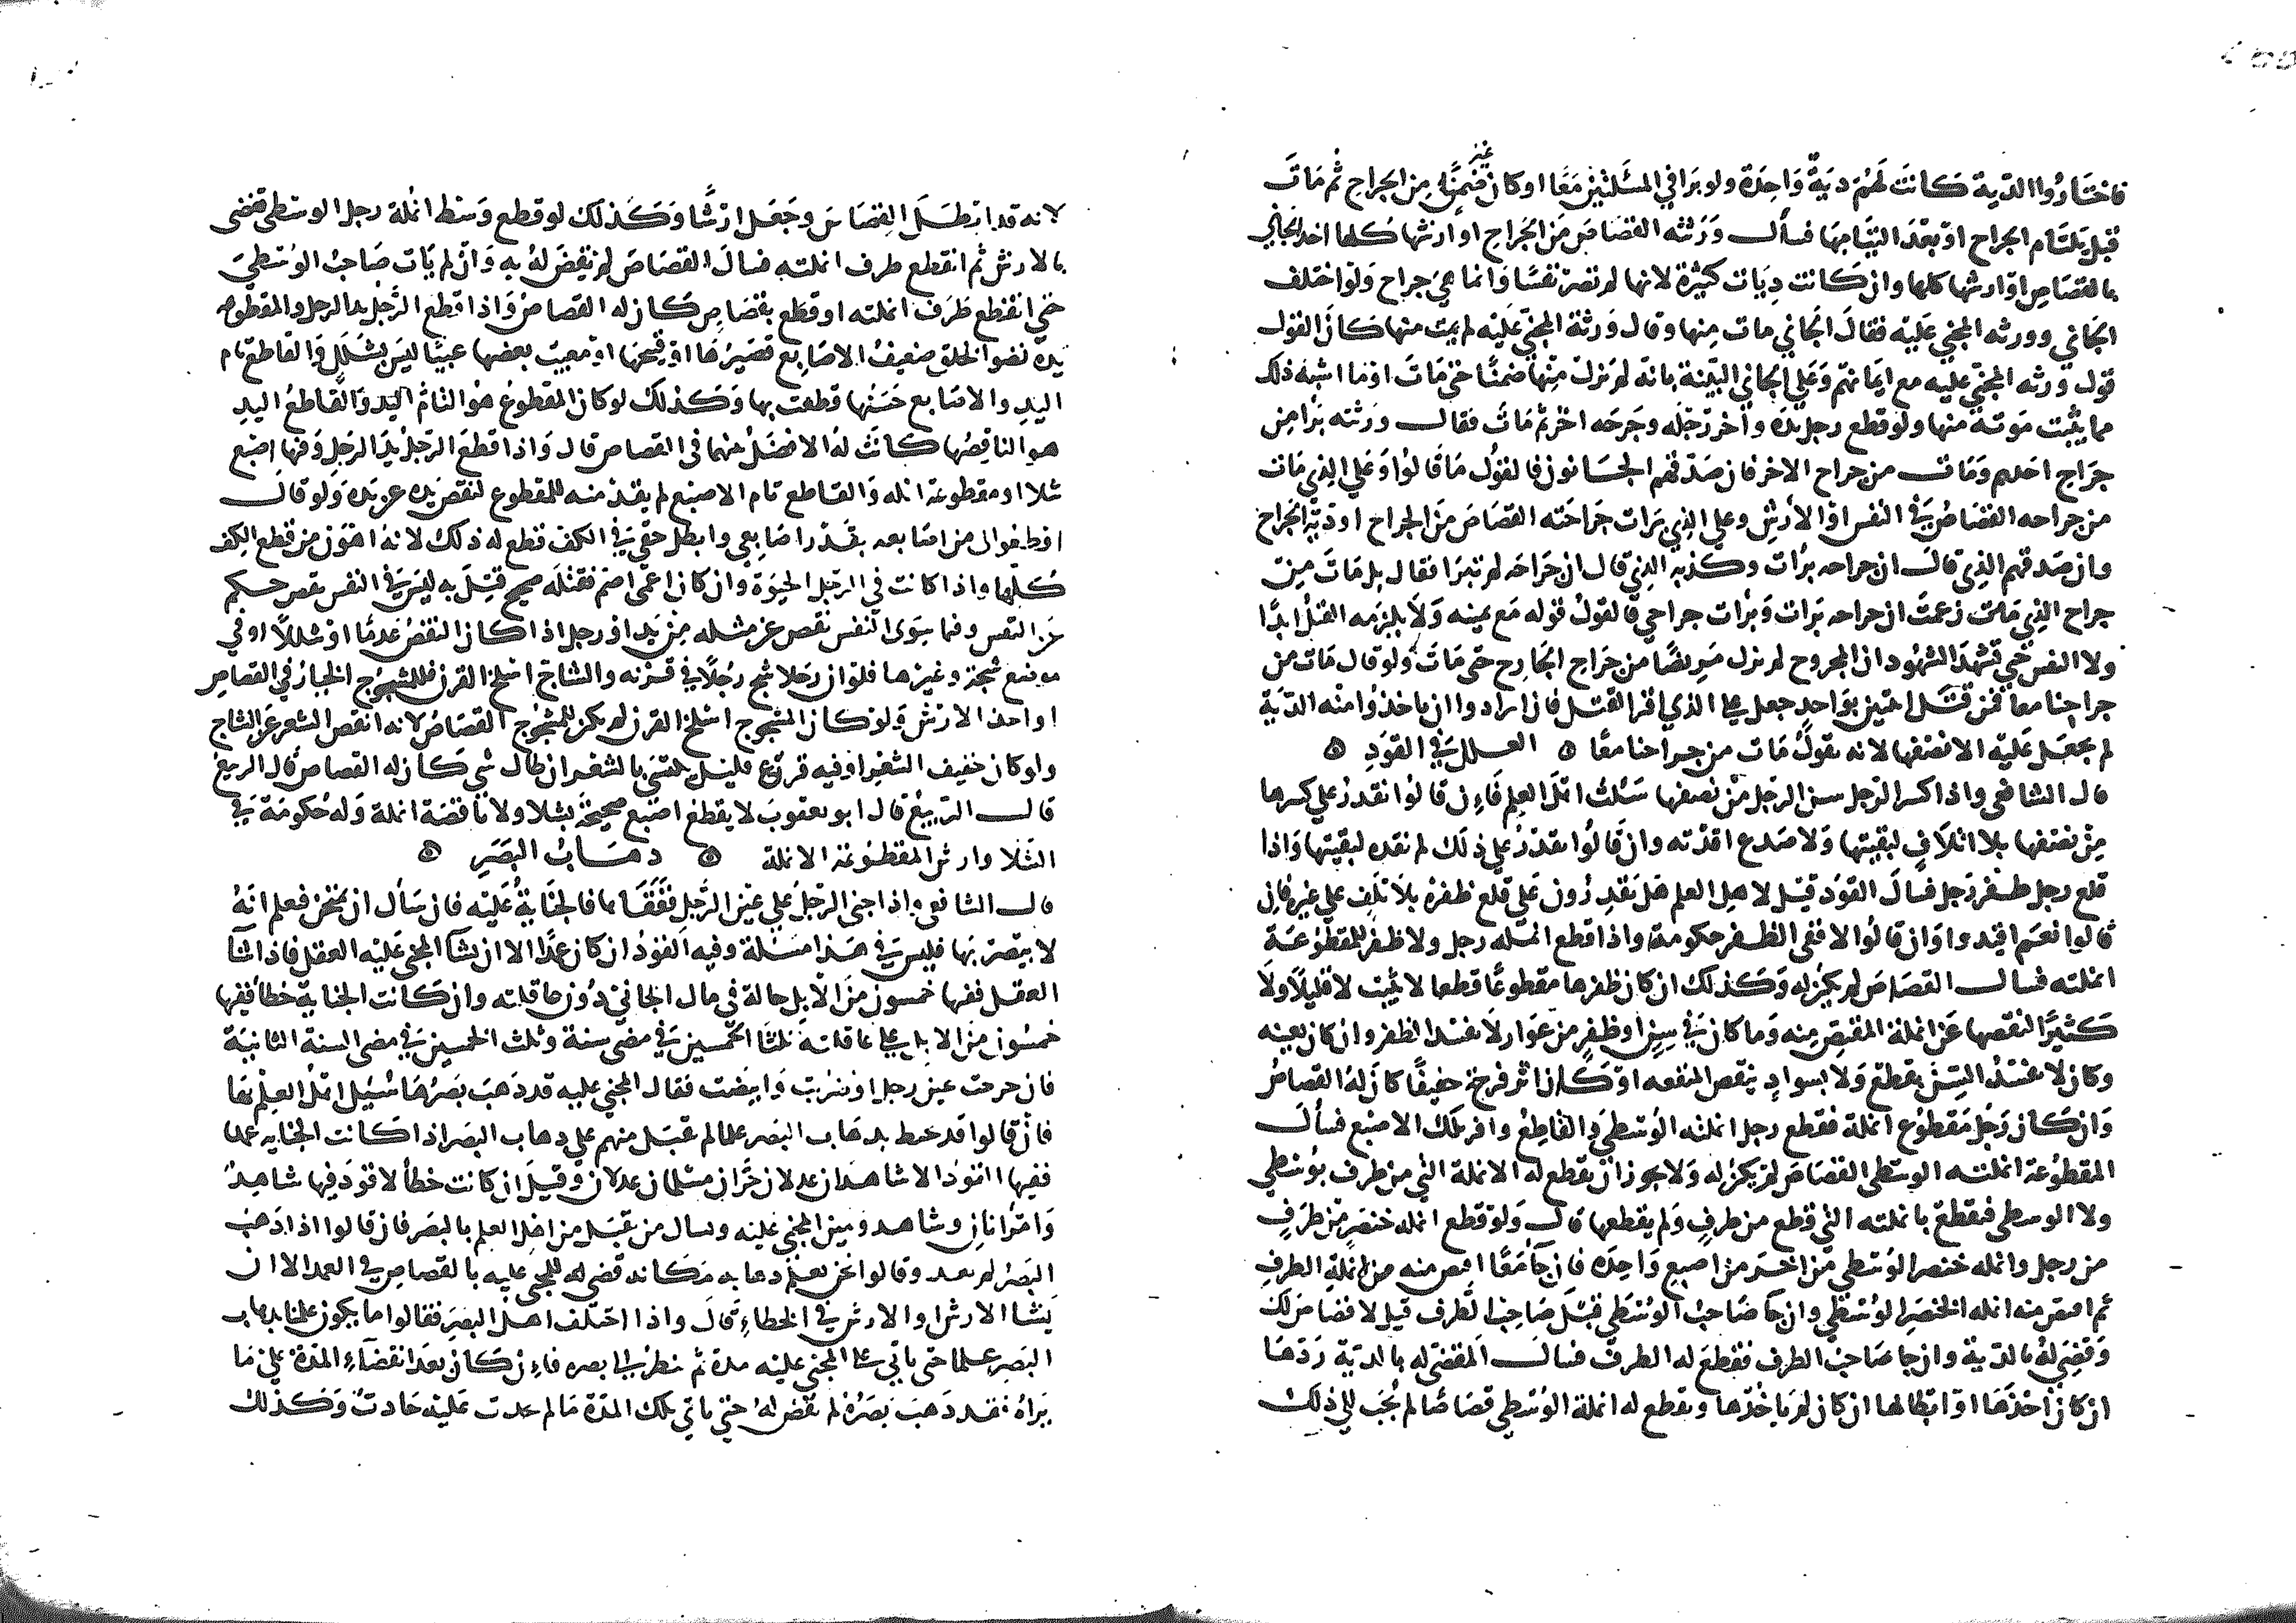 فاختاروا الدية كانت لهم دية واحدة ولو برا في المسئلتين معا او كان غير ضمن من الجراح ثم مات
قبل يلتئام الجراح او بعد التيامها فسأل ورثته القصاص من الجراح او ارشها كلها اخذ الجاني
بالقصاص او ارشها كلها وان كانت ديات كثيرة لانها لم تصر نفسا وانما هي جراح ولو اختلف
الجاني وورثه المجني عليه فقال الجاني مات منها وقال ورثة المجني عليه لم يمت منها كان القول
قول ورثه المجني عليه مع ايمانهم وعلى الجاني البينة بانه لم يزل منها ضمنا حتى مات او ما اشبه ذلك
مما يثبت موته منها ولو قطع رجل يده واخر رجله وجرحه اخر ثم مات فقال ورثته برا من
جراح احدهم ومات من جراح الاخر فان صدقهم الجانون فالقول ما قالوا وعلي الذي مات
من جراحه القصاص في النفس او الارش وعلي الذي برات جراحته القصاص من الجراح او دية الجراح
وان صدقهم الذي قال ان جراحه برات وكذبه الذي قال ان جراحه لم تبرا فقال بل مات من
جراح الذي زعمت ان جراحه برات وبرات جراحي فالقول قوله مع يمينه ولا يلزمه القتل ابدا
ولا النفس حتي تشهد الشهود ان المجروح لم يزل مريضا من جراح الجارح حتى مات ولو قال مات من
جراحنا معا فمن قتل اثنين بواحد جعل على الذي اقر القتل فان ارادوا ان ياخذوا منه الدية
لم يجعل عليه الا نصفها لانه يقول مات من جراحنا معا ۞ العلل في القود ۞
قال الشافعي واذا كسر الرجل سن الرجل من نصفها سئلت اهل العلم فاءن قالوا نقدر علي كسرها
من نصفها بلا اتلاف لبقيتها ولا صدع اقدته وان قالوا نقدر علي ذلك لم نقده لبقيتها واذا
قلع رجل ظفر رجل فسال القود قيل لاهل العلم هل تقدرون علي قلع ظفره بلا تلف علي غيره فان
قالوا نعم اقيد وا وان قالوا لا ففي الظفر حكومة واذا قطع انملة رجل ولا ظفر للمقطوعة
انملته فسال القصاص لم يكن له وكذلك ان كان ظفرها مقطوعا قطعا لا يثبت لا قليلا ولا
كثيرا لنقصها عن انملة المقتص منه وما كان في سن او ظفر من عوار لا يفسد الظفر وان كان يعيبه
وكان لا يفسد السن بقطع ولا بسواد ينقص المنفعه او كان اثر قرحة خفيفا كان له القصاص
وان كان رجل مقطوع انملة فقطع رجل انملته الوسطى والقاطع وافر تلك الاصبع فسأل
المقطوعة انملته الوسطى القصاص لم يكن له ولا يجوز ان يقطع له الانملة التي من طرف بوسطي
ولا الوسطي فيقطع بانملته التي قطع من طرف ولم يقطعها قال ولو قطع انمله خنصر من طرف
من رجل وانمله خنصر الوسطي من اخر من اصبع واحده فان جا معا اقص منه من انملة الطرف
ثم اقص منه انمله الخنصر الوسطى وان جا صاحب الوسطي قبل صاحب الطرف قيل لا قصاص لك
وقضي له بالدية وان جا صاحب الطرف فقطع له الطرف فسال المقضى له بالدية ردها
ان كان اخذها او ابطالها ان كان لم ياخذها ويقطع له انملة الوسطي قصاصا لم نجب الى ذلك
لانه قد ابطل القصاص وجعل ارشا وكذلك لو قطع وسط انملة رجل الوسطي فقضى
بالارش ثم انقطع طرف انملته فسال القصاص لم نقض له به وان لم يات صاحب الوسطي
حتى انقطع طرف انملته او قطع بقصاص كان له القصاص واذا قطع الرجل يد الرجل والمقطوعه
يده نضو الخلق ضعيف الاصابع قصيرها او قبيحها او معيب بعضها عيبا ليس بشلل والقاطع تام
اليد والاصابع حسنها قطعت بها وكذلك لو كان المقطوع هو التام اليد والقاطع اليد
هو الناقصها كانت له لا فضل بينهما في القصاص قال واذا قطع الرجل يد الرجل وفيها اصبع
شلا او مقطوعة انله والقاطع تام الاصبع لم يقد منه للمقطوع لنقص يده عن يده ولو قال
اقطعوا لي من اصابعه بقدر اصابعي وابطل حقي في الكف قطع له ذلك لانه اهون من قطع الكف
كلها واذا كانت في الرجل الحيوة وان كان اعمى اصم فقتله صحيح قتل به ليس في النفس نقص حكم
عن النفس وفيما سوى النفس نقص عن مثله من يد او رجل اذا كان النقص عدما او شللا او في
موضع شجة وغيرها فلو ان رجلا شج رجلا في قرنه والشاج اسلخ القرن فللمشجوج الخيار في القصاص
او اخذ الارش ولو كان المشجوج اسلخ القرن لم يكن للمشجوج القصاص لانه انقص الشعر عن الشاج
ولو كان خفيف الشعر او فيه قرع قليل يلتسى بالشعر ان طال شي كان له القصاص قال الربيع
قال الربيع قال ابو يعقوب لا يقطع اصبع صحيحة بشلا ولا ناقصة انملة وله حكومة في
الشلا وارش المقطوعة الانملة ۞ ذهاب البصر ۞
قال الشافعي واذا جنى الرجل على عين الرجل ففقاها فالجناية عليه فان سأل ان نمتحن فعلم انه
لا يبصر بها فليس في هذا مسئلة وفيه القود ان كان عمدا الا ان يشآ المجني عليه العقل فاذا شآ
العقل ففيها خمسون من الابل حالة في مال الجاني دون عاقلته وان كانت الجناية خطأ ففيها
خمسون من الابل على عاقلته ثلثا الخمسين في مضي سنة وثلث الخمسين في مضى السنة الثانية
فان جرحت عين رجل او ضربت وابيضت فقال المجني عليه قد ذهب بصرها سئيل اهل العلم بها
فان قالوا قد نحيط بذهاب البصر علما لم يقبل منهم على ذهاب البصر اذا كانت الجنايه عمدا
ففيها القود الا شاهدان عدلان حران مسلمان عدلان وقيل ان كانت خطأ لا قود فيها شاهد
وامرأتان وشاهد ويمين المجني عليه ويسال من يقبل من اهل العلم بالبصر فان قالوا اذا ذهب
البصر لم يعد وقالوا نحن نعلم ذهابه مكانه قضي للمجني عليه بالقصاص في العمد الا ان
يشا الارش او الارش في الخطاء قال واذا اختلف اهل البصر فقالوا ما يكون علمنا بذهاب
البصر علما حتى ياتي على المجني عليه مدة ثم ننظر الى بصره فاءن كان بعد انقضآء المدة على ما
نراه فقد ذهب بصره لم نقض له حتى ياتي تلك المدة ما لم يحدث عليه حادث وكذلك